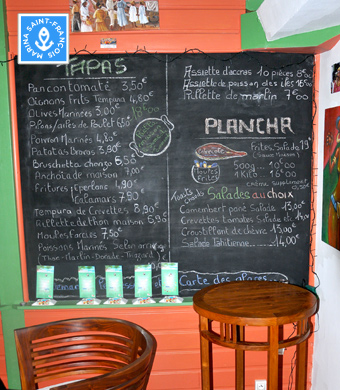 MARINA SAINT-FRANÇOIS
TAPAS
Pan con tomate 3,50€
Oignons frits Tempura 4,80€
Olives Marinées 3,00€
Poivron Marinés 4,80
Patatas Bravas 3,90€
Bruschetta chorizo 5,55
Anchoïade maison 7,00€
Fritures Eperlans 4,90€
Calamars 7,50€
Tempura de Crevettes 8,90€
Rillette de thon maison 5,95
Moules Farcies 7,50€
Poissons Marinés Selon arrivage
(Thon-Martin-Dorade-Thazard)
Assiette d'accras 10 pièces
Assiette de poisson
Rillette de marlin 7€00
PLANCHA
Frites, Salade 19€
500g 10€00
1 Kilo 16€00
Moules Frites
crème supplément
Salades au choix
Camembert pané Salade 13,00€
Crevettes tomates Salade
Croustillant de chèvre 13,00€
Salade Tahitienne 14,00€
Carte des glaces